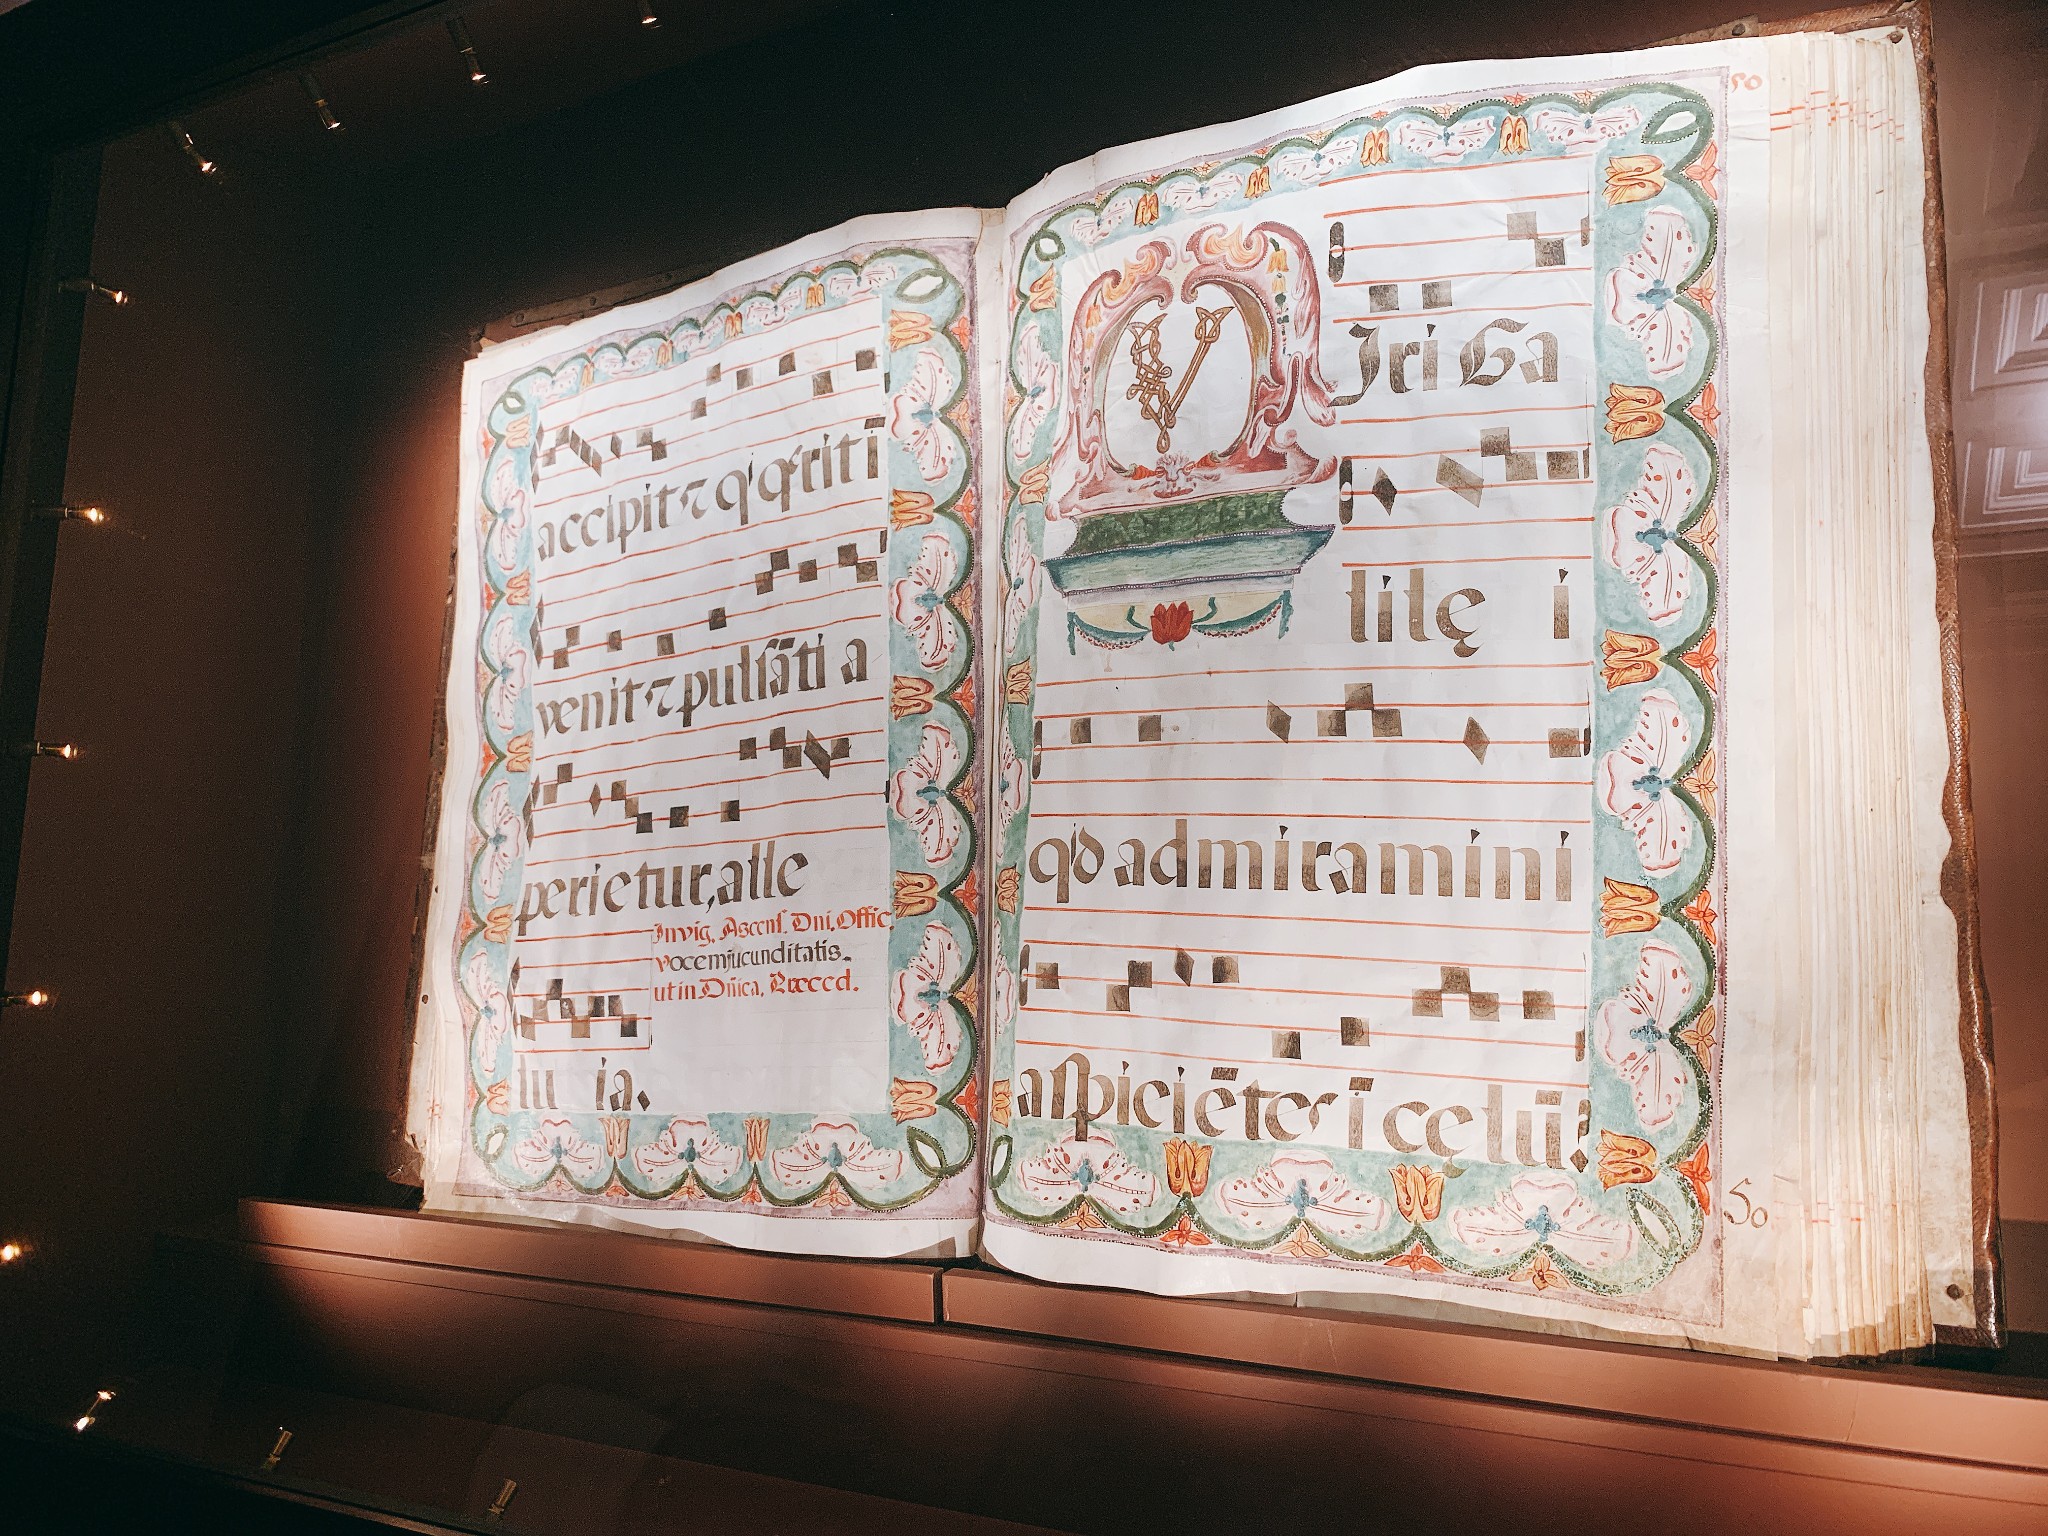 accipit ⁊ q' q̄rit ī
venit ⁊ pulsāti a
perietur, alle
Invig. Ascens. Dni. Offic.
vocem jucunditatis.
ut in Dn̄ica. Præced.
lu ia.
50
VIri Ga
lilę i
qd admiramini
aspiciētes ī cęlū?
50